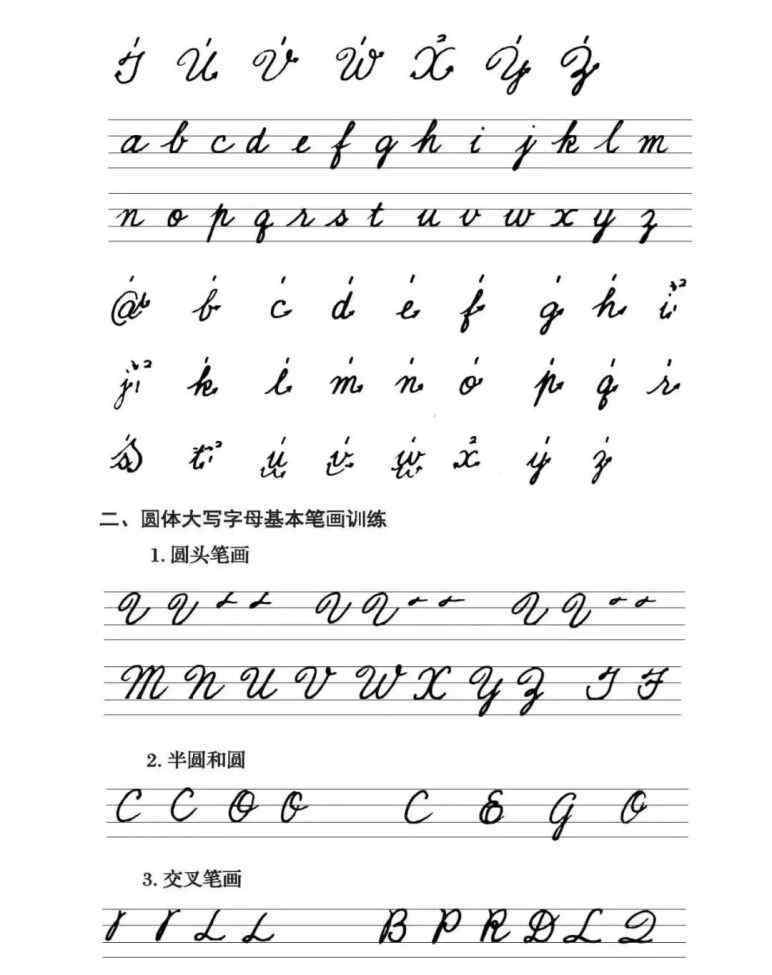 T U V W X Y Z
a b c d e f g h i j k l m
n o p q r s t u v w x y z
a b c d e f g h i
j k l m n o p q r
s t u v w x y z
二、圆体大写字母基本笔画训练
1. 圆头笔画
M N U V W X Y Z T F
2. 半圆和圆
C C O O C E G O
3. 交叉笔画
B P R D L Q